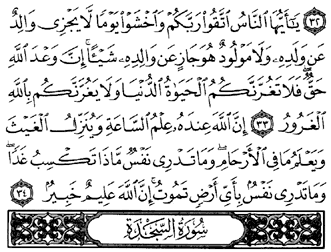 ٣٢ يَـٰٓأَيُّهَا ٱلنَّاسُ ٱتَّقُوا۟ رَبَّكُمْ وَٱخْشَوْا۟ يَوْمًا لَّا يَجْزِى وَالِدٌ
عَن وَلَدِهِۦ وَلَا مَوْلُودٌ هُوَ جَازٍ عَن وَالِدِهِۦ شَيْـًٔا ۚ إِنَّ وَعْدَ ٱللَّهِ
حَقٌّ ۖ فَلَا تَغُرَّنَّكُمُ ٱلْحَيَوٰةُ ٱلدُّنْيَا وَلَا يَغُرَّنَّكُم بِٱللَّهِ
ٱلْغَرُورُ ٣٣ إِنَّ ٱللَّهَ عِندَهُۥ عِلْمُ ٱلسَّاعَةِ وَيُنَزِّلُ ٱلْغَيْثَ
وَيَعْلَمُ مَا فِى ٱلْأَرْحَامِ ۖ وَمَا تَدْرِى نَفْسٌ مَّاذَا تَكْسِبُ غَدًا ۖ
وَمَا تَدْرِى نَفْسٌۢ بِأَىِّ أَرْضٍ تَمُوتُ ۚ إِنَّ ٱللَّهَ عَلِيمٌ خَبِيرٌۢ ٣٤
سُورَةُ السَّجْدَةِ